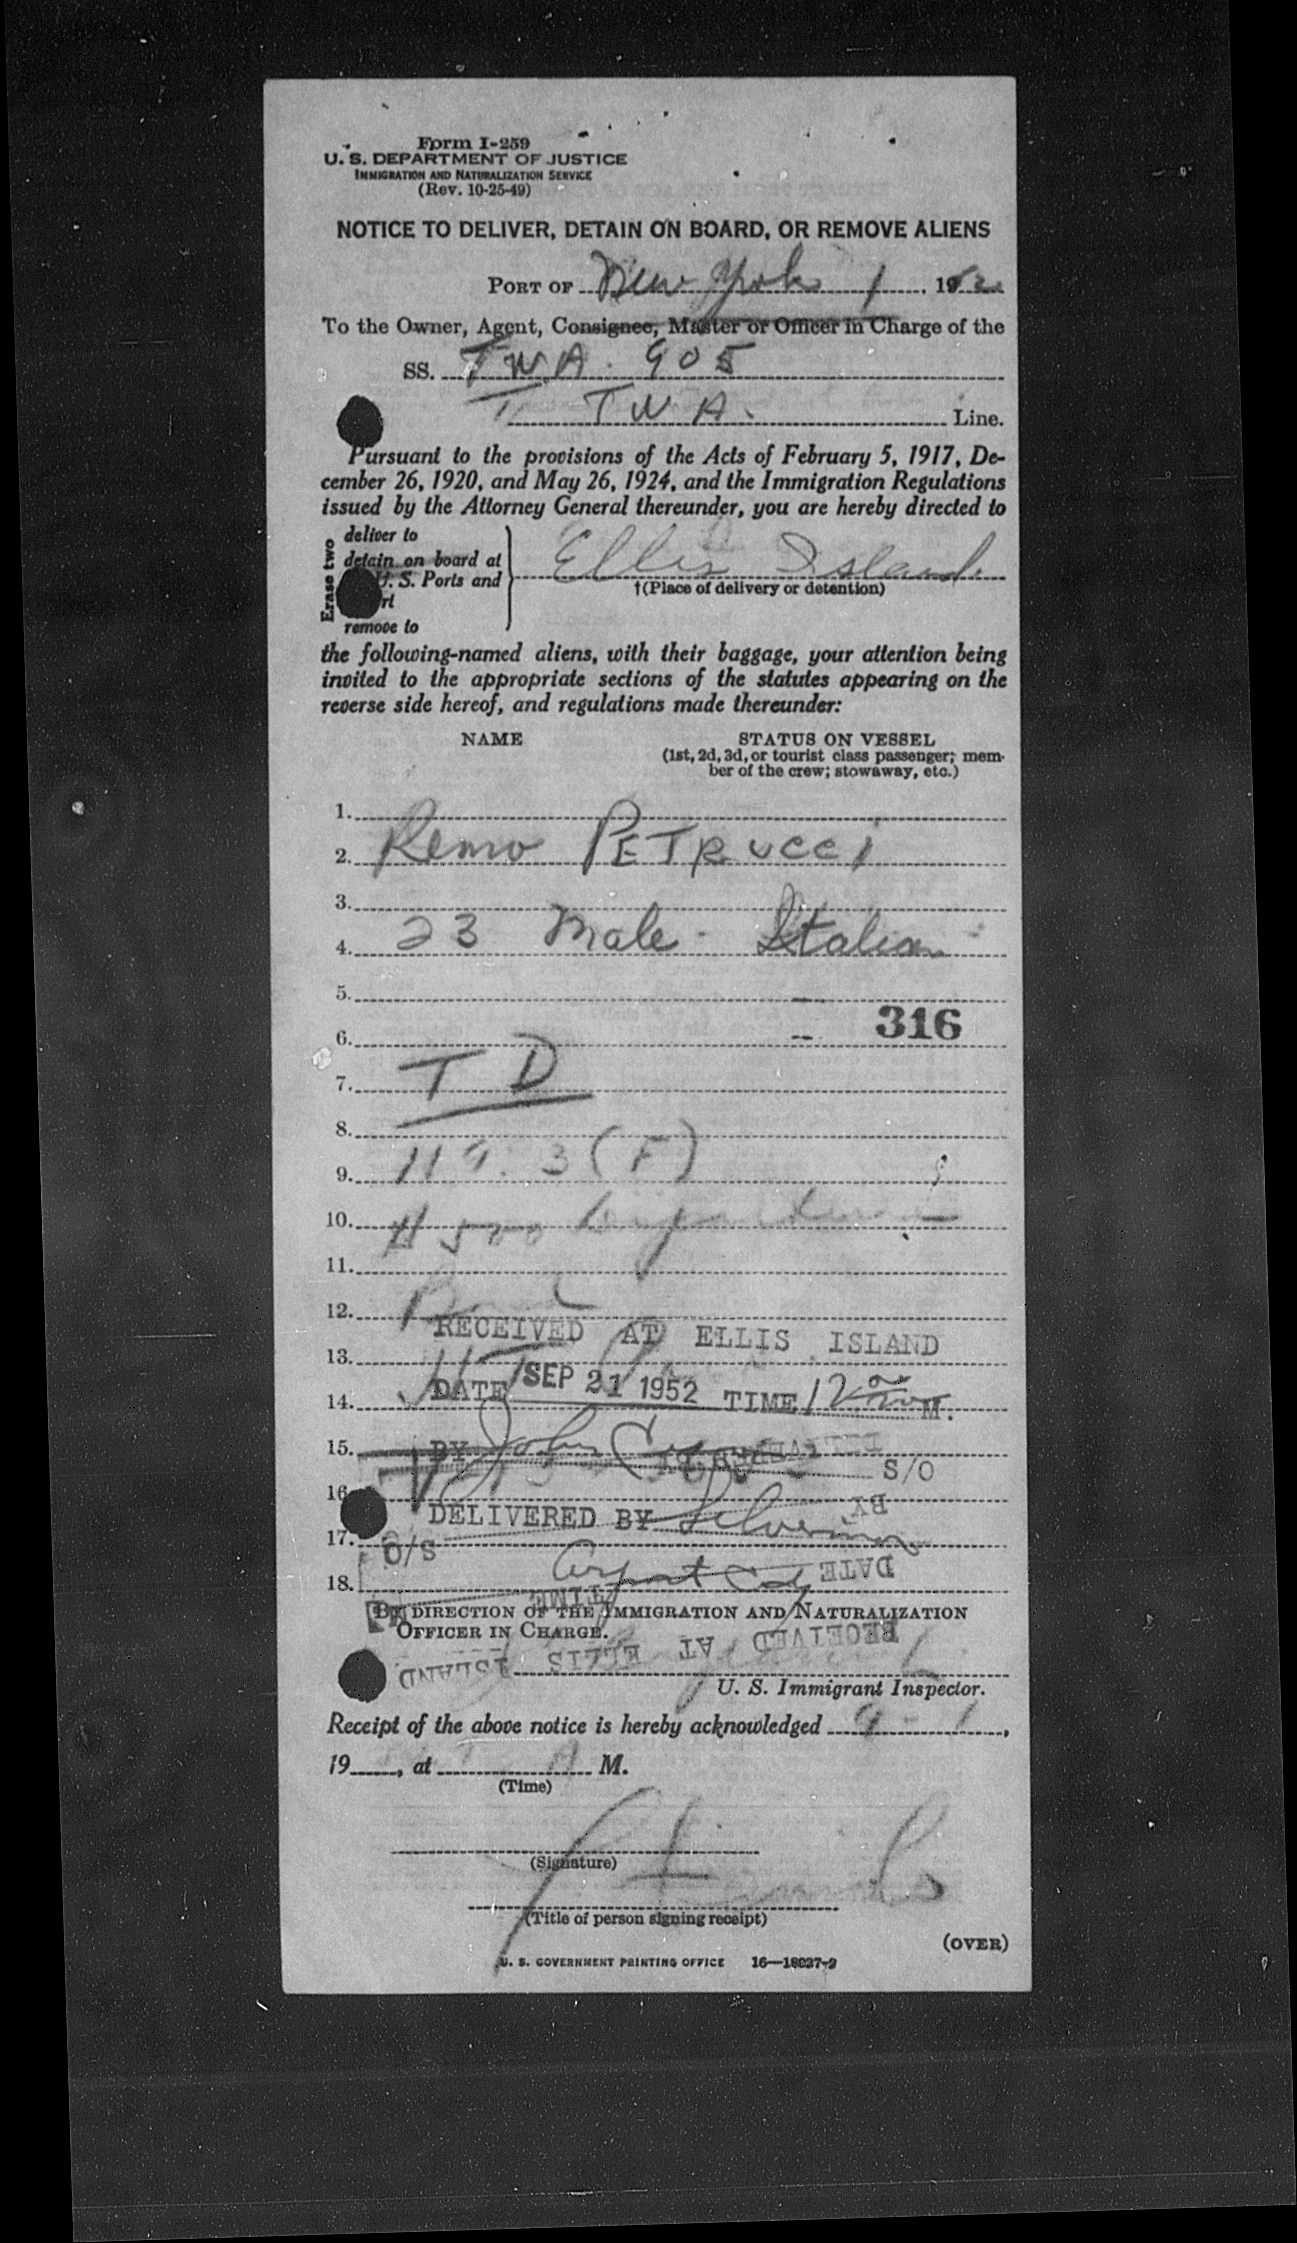 Form I-259
U. S. DEPARTMENT OF JUSTICE
IMMIGRATION AND NATURALIZATION SERVICE
(Rev. 10-25-49)
NOTICE TO DELIVER, DETAIN ON BOARD, OR REMOVE ALIENS
PORT OF New York 1, 1952
To the Owner, Agent, Consignee, Master or Officer in Charge of the
SS. TWA. 905
TWA. Line.
Pursuant to the provisions of the Acts of February 5, 1917, De-
cember 26, 1920, and May 26, 1924, and the Immigration Regulations
issued by the Attorney General thereunder, you are hereby directed to
Erase two
deliver to
detain on board at
U. S. Ports and
remove to
Ellis Island
†(Place of delivery or detention)
the following-named aliens, with their baggage, your attention being
invited to the appropriate sections of the statutes appearing on the
reverse side hereof, and regulations made thereunder:
NAME STATUS ON VESSEL
(1st, 2d, 3d, or tourist class passenger; mem-
ber of the crew; stowaway, etc.)
1.
2. Remo PETRUCCI
3.
4. 23 Male - Italian
5.
316
6.
7. T D
8.
9. 119. 3 (F)
10. $500 Departure
11.
12. Bond
RECEIVED AT ELLIS ISLAND
13.
DATE SEP 21 1952 TIME 12 M.
14.
15. BY John S/O
16.
DELIVERED BY Silverman
17.
S/O
18. Airport
DATE
BY
TIME
BY DIRECTION OF THE IMMIGRATION AND NATURALIZATION
OFFICER IN CHARGE.
RECEIVED AT ELLIS ISLAND
U. S. Immigrant Inspector.
Receipt of the above notice is hereby acknowledged 9 - 1,
19, at A M.
(Time)
(Signature)
(Title of person signing receipt)
(OVER)
U. S. GOVERNMENT PRINTING OFFICE 16—18027-2